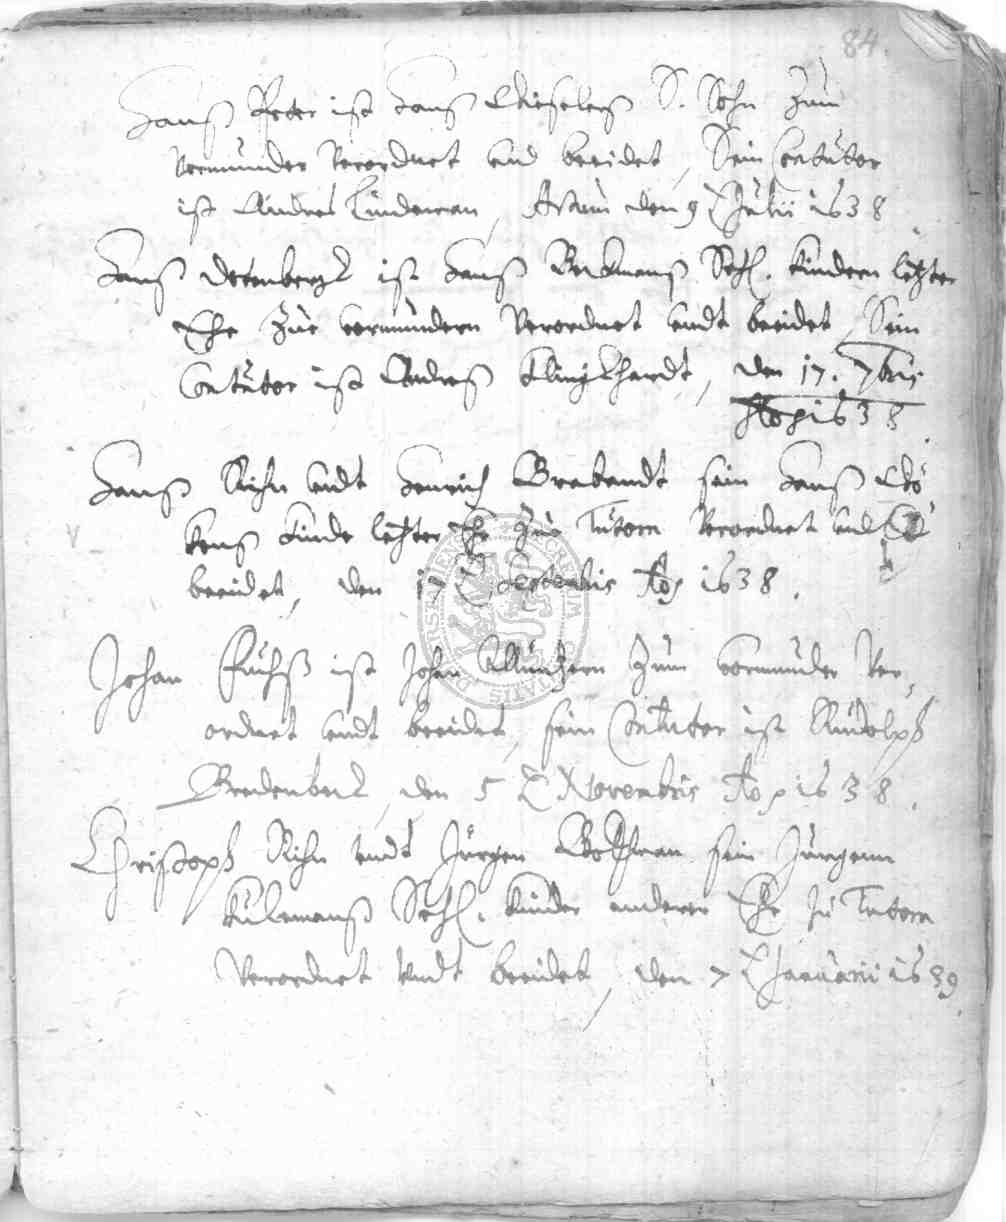 84.
Hanß Peter ist Hanß Wieselers S. Sohn zum
Vormunder Verordnet und beeidet, Sein Contutor
ist Andres Lindeman, Actum den 9 Julii 1638
Hanß ist Hanß Seel. kindern letzter
Ehe zue vormundern Verordnet undt beeidet, Sein
Contutor ist Andreß Klinckhardt, den 17. 7bris
Ao 1638
Hanß Kihn undt Henrich Brabandt sein Hanß
kens kinde letzter Ehe zue Tutorn Verordnet und
beeidet, den 17 Septembris Ao 1638.
Johan Fuchß ist Johan zum vormunder Ver,
ordnet undt beeidet, sein Contutor ist Rudolph
Bredenbeck, den 5 Novembris Ao 1638.
Christoph Kihn undt Jürgen sein Jürgenn
Kulemanß Seel. kinder anderer Ehe zu Tutorn
Verordnet undt beeidet, den 7 Januarii 1639